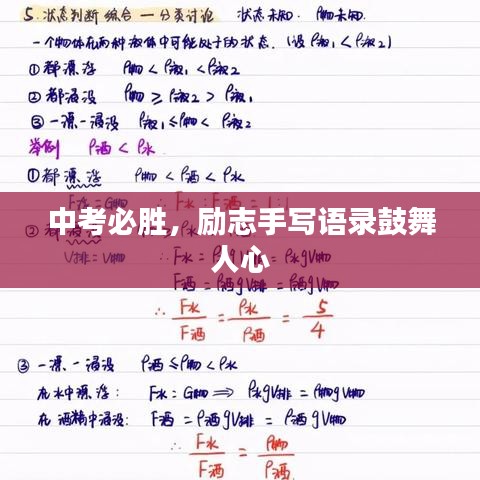 5. 状态判断综合一分类讨论 状态未知. ρ物未知.
一个物体在两种液体中可能处于的状态. (设ρ液1<ρ液2)
①都漂浮 ρ物<ρ液1<ρ液2
②都浸没 ρ物≥ρ液2>ρ液1
③一漂一浸没 ρ液1≤ρ物<ρ液2
举例 ρ酒<ρ水
①都漂浮 ρ物<ρ酒<ρ水
中考必胜，励志手写语录鼓舞
人心
V排=V物
F酒=ρ酒gV排=ρ酒gV物
∴ F水/F酒 = ρ水/ρ酒 = 5/4
③一漂、一浸没 ρ酒≤ρ物<ρ水
在水中漂浮: F水=G物⇒ρ水gV排=ρ物gV物
在酒精中浸没: F酒=ρ酒gV排=ρ酒gV物
∴ F水/F酒 = ρ物/ρ酒